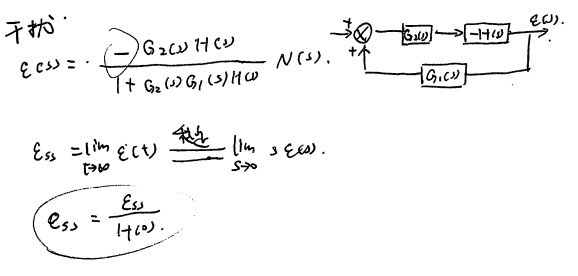 干扰
ε(s) = - G₂(s) H(s) / 1 + G₂(s) G₁(s) H(s) N(s).
+ + G₂(s) -H(s) ε(s).
G₁(s)
εss = lim t→∞ ε(t) = lim s→0 s ε(s).
ess = εss / H(0).